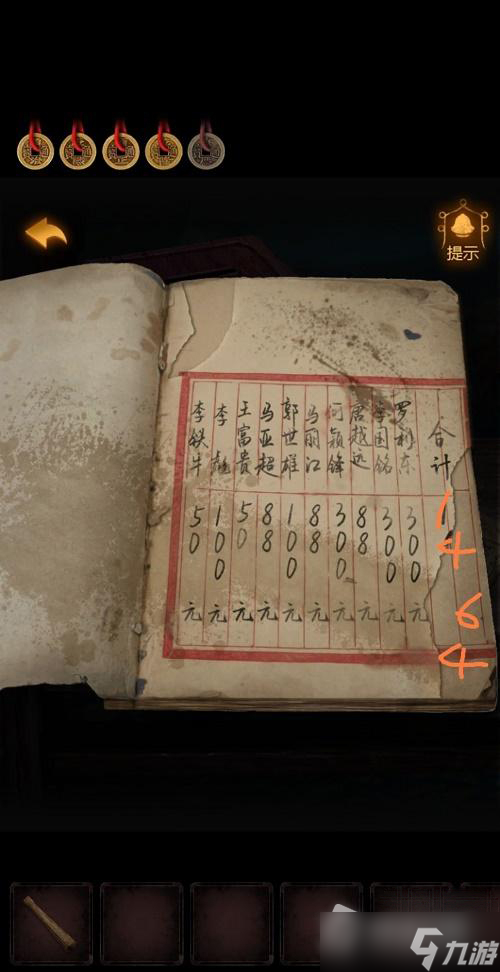 提示
李铁牛 50元
李 100元
王富贵 50元
马亚超 88元
郭世雄 100元
马丽江 88元
何颖锋 300元
唐越远 88元
国铭 300元
罗利东 300元
合计 1464
九游